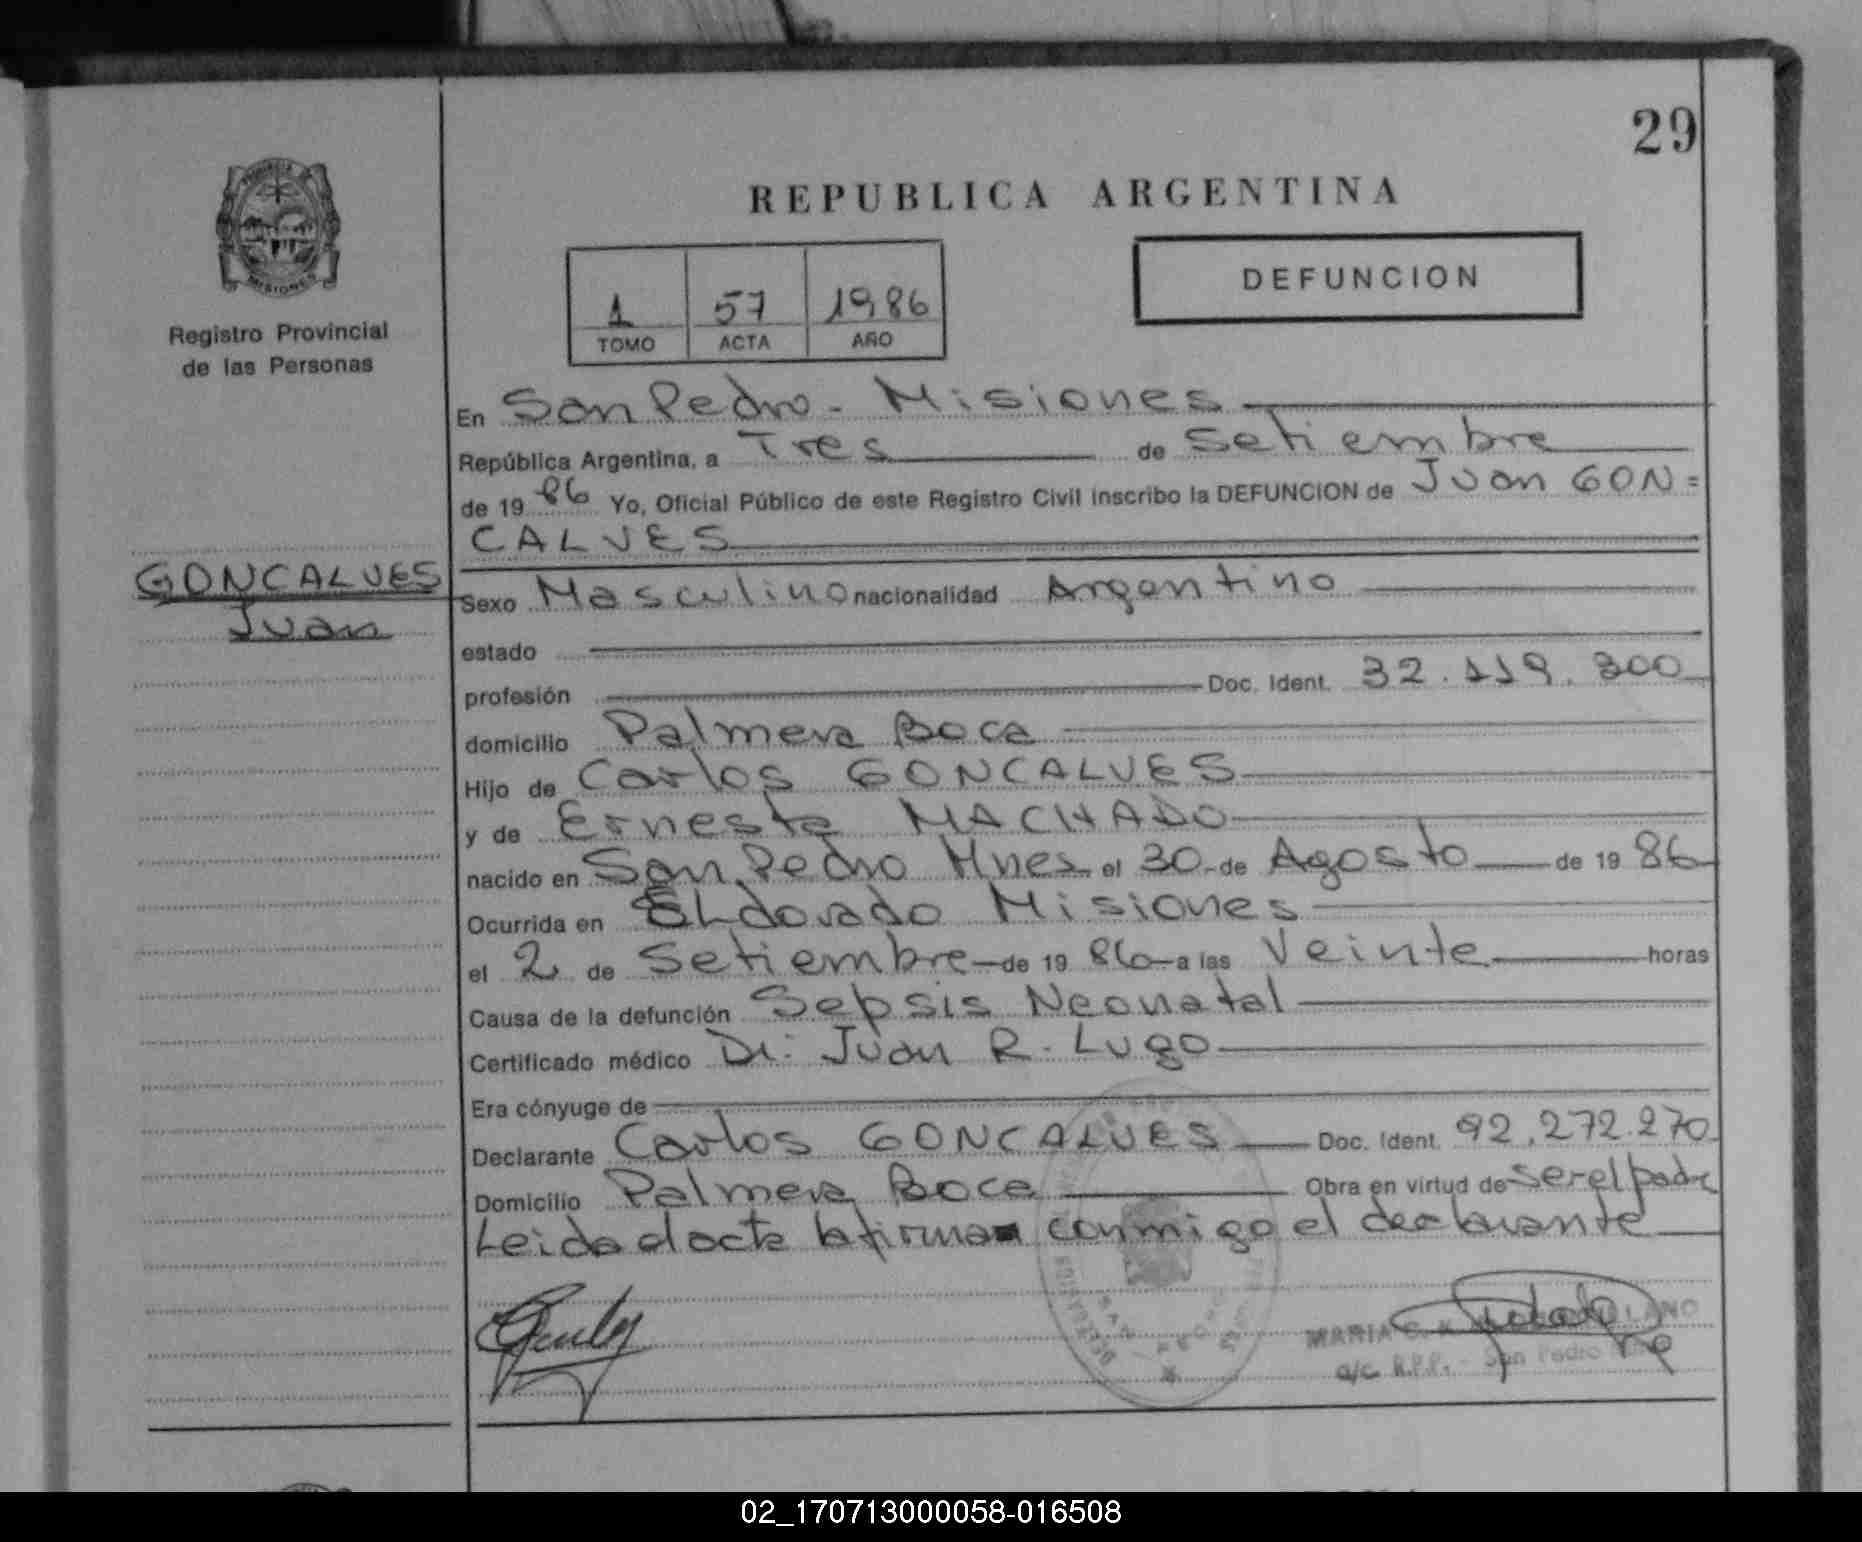 29
REPUBLICA ARGENTINA
PROVINCIA
MISIONES
Registro Provincial
de las Personas
1 57 1986
TOMO ACTA AÑO
DEFUNCION
En San Pedro - Misiones
República Argentina, a Tres de Setiembre
de 19 86 Yo, Oficial Público de este Registro Civil inscribo la DEFUNCION de Juan GON=
CALVES
GONCALVES
Juan
Sexo Masculino nacionalidad Argentino
estado
profesión Doc. Ident. 32.119.300
domicilio Palmera Boca
Hijo de Carlos GONCALVES
y de Ernesta MACHADO
nacido en San Pedro Mnes el 30 de Agosto de 19 86
Ocurrida en ELdorado Misiones
el 2 de Setiembre de 19 86 a las Veinte horas
Causa de la defunción Sepsis Neonatal
Certificado médico Dr. Juan R. Lugo
Era cónyuge de
Declarante Carlos GONCALVES Doc. Ident. 92.272.270
Domicilio Palmera Boca Obra en virtud de ser el padre
Leida el acta la firma conmigo el declarante
MARIA
a/c R.P.P. - San Pedro
02_170713000058-016508